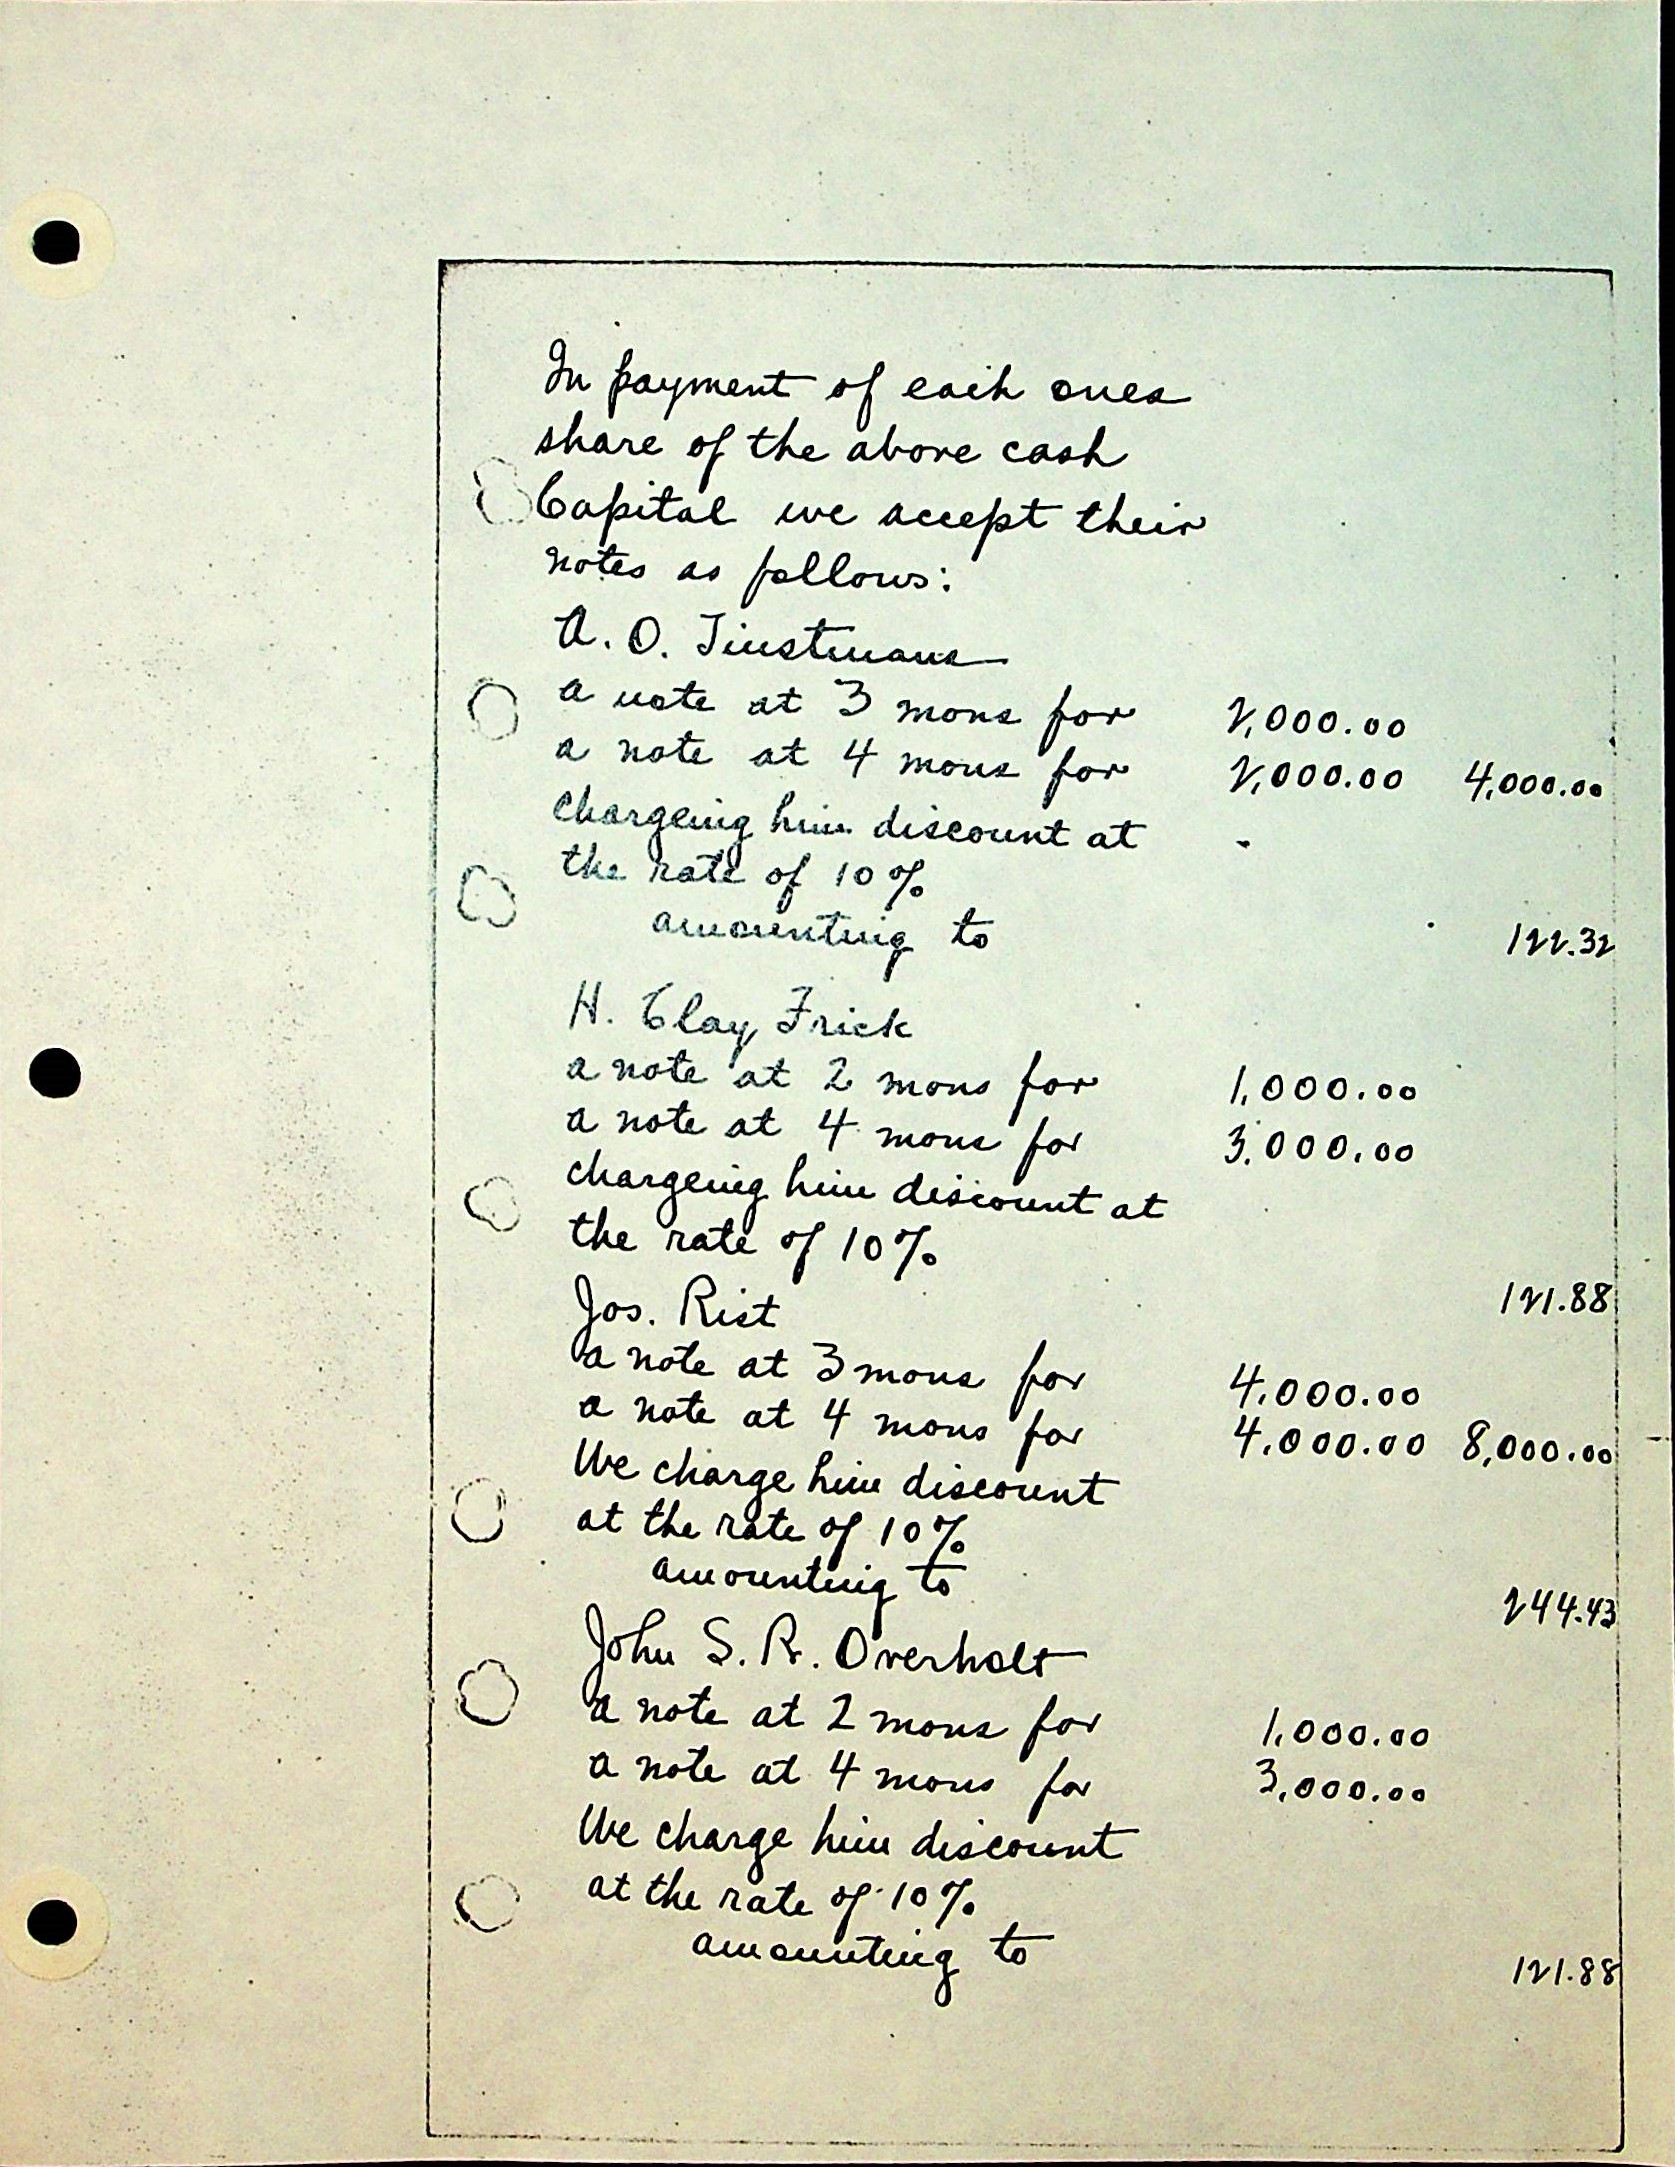 In payment of each ones
share of the above cash
Capital we accept their
notes as follows:
A. O. Tinstmans
a note at 3 mons for 2,000.00
a note at 4 mons for 2,000.00 4,000.00
Chargeing him discount at
the rate of 10%
amounting to 122.32
H. Clay Frick
a note at 2 mons for 1,000.00
a note at 4 mons for 3,000.00
chargeing him discount at
the rate of 10%
121.88
Jos. Rist
a note at 3 mons for 4,000.00
a note at 4 mons for 4,000.00 8,000.00
We charge him discount
at the rate of 10%
amounting to 244.43
John S. R. Overholt
a note at 2 mons for 1,000.00
a note at 4 mons for 3,000.00
We charge him discount
at the rate of 10%
amounting to 121.88